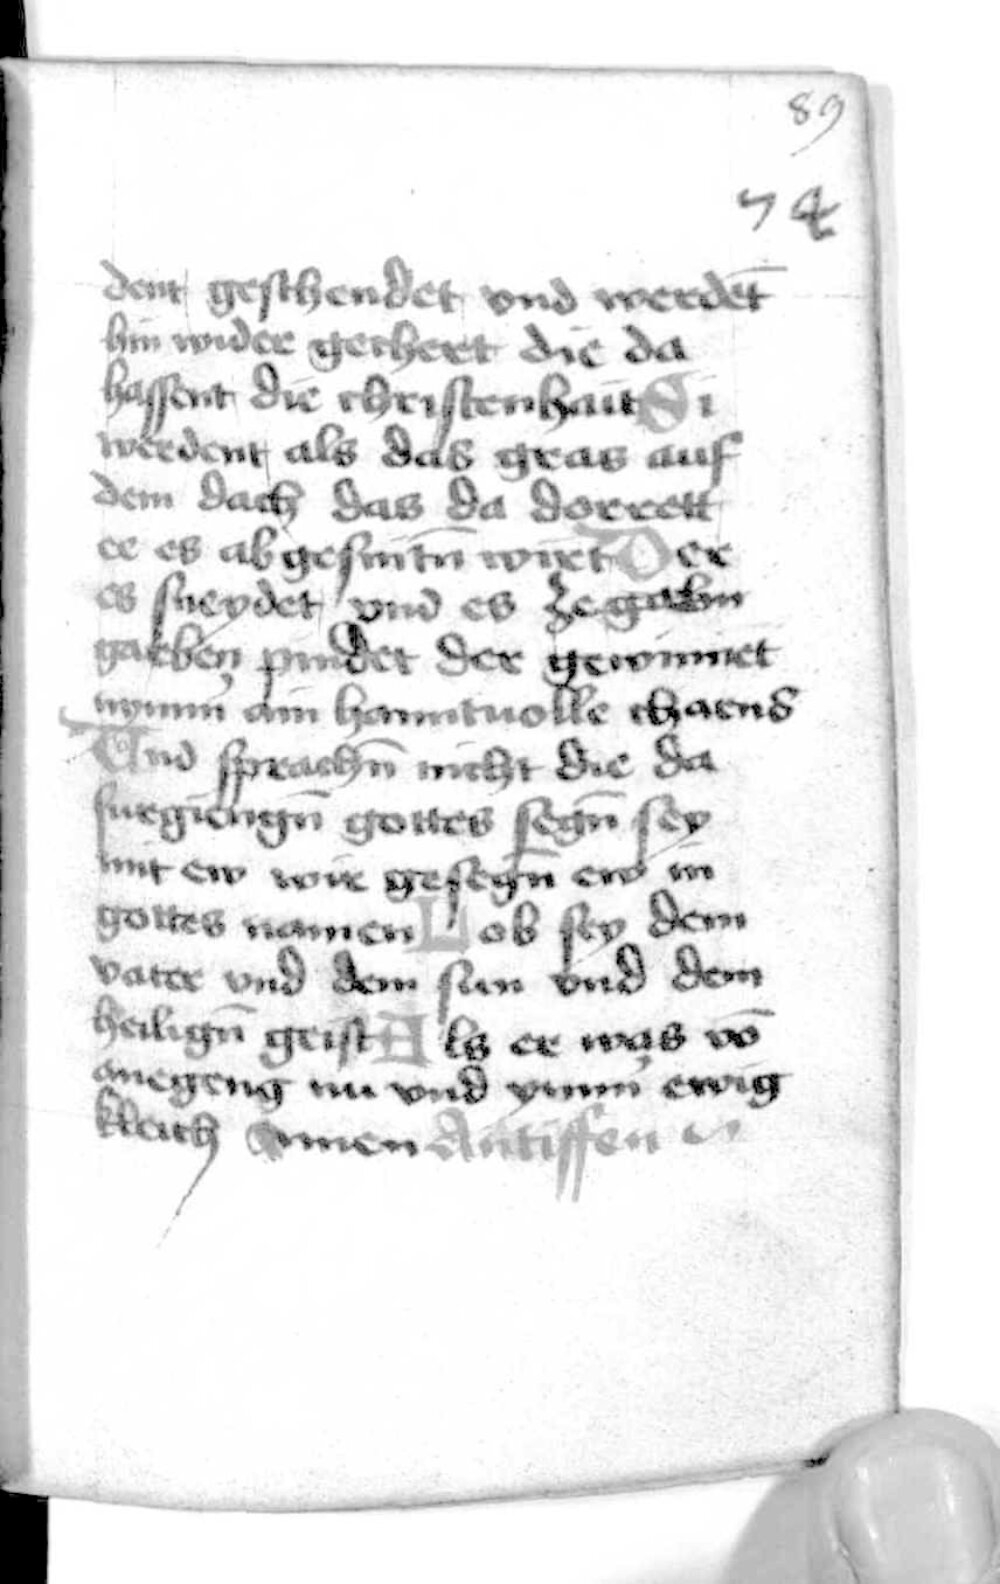 89
74
dent geschendet vnd werdēt
hin wider gechert die da
hassent die christenhait Si
werdent als das gras auf
dem dach das da dorrett
ee es abgesnitn̄ wirt Der
es sneydet vnd es ze
garben pindet der gewinnet
nymm̄ ain hanntuolle chaens
Vnd sprachn̄ nicht die da
furgiengn̄ gottes segn̄ sey
mit ew wir gesegn̄ ew in
gottes namen Lob sey dem
vater vnd dem sun vnd dem
heilign̄ geist Als er was vō
anegeng nu vnd ymm̄ ewig
kleich Amen Antiffen